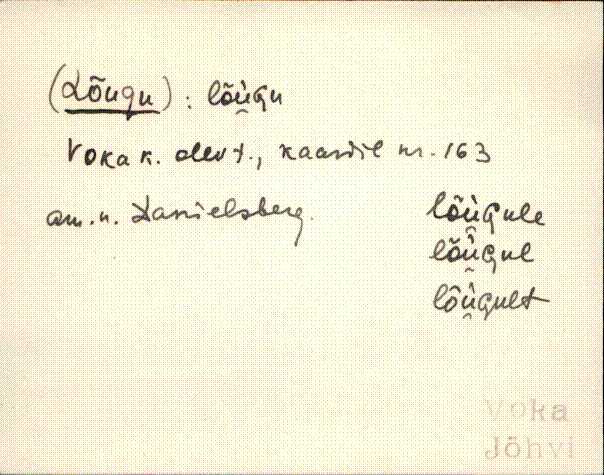 (Lõugu) : lõu̯Gu
Voka k.
kaardil nr. 163
am. n. Danielsberg.
lõu̯Gule
lõu̯Gul
lõu̯Gult
Voka
Jõhvi